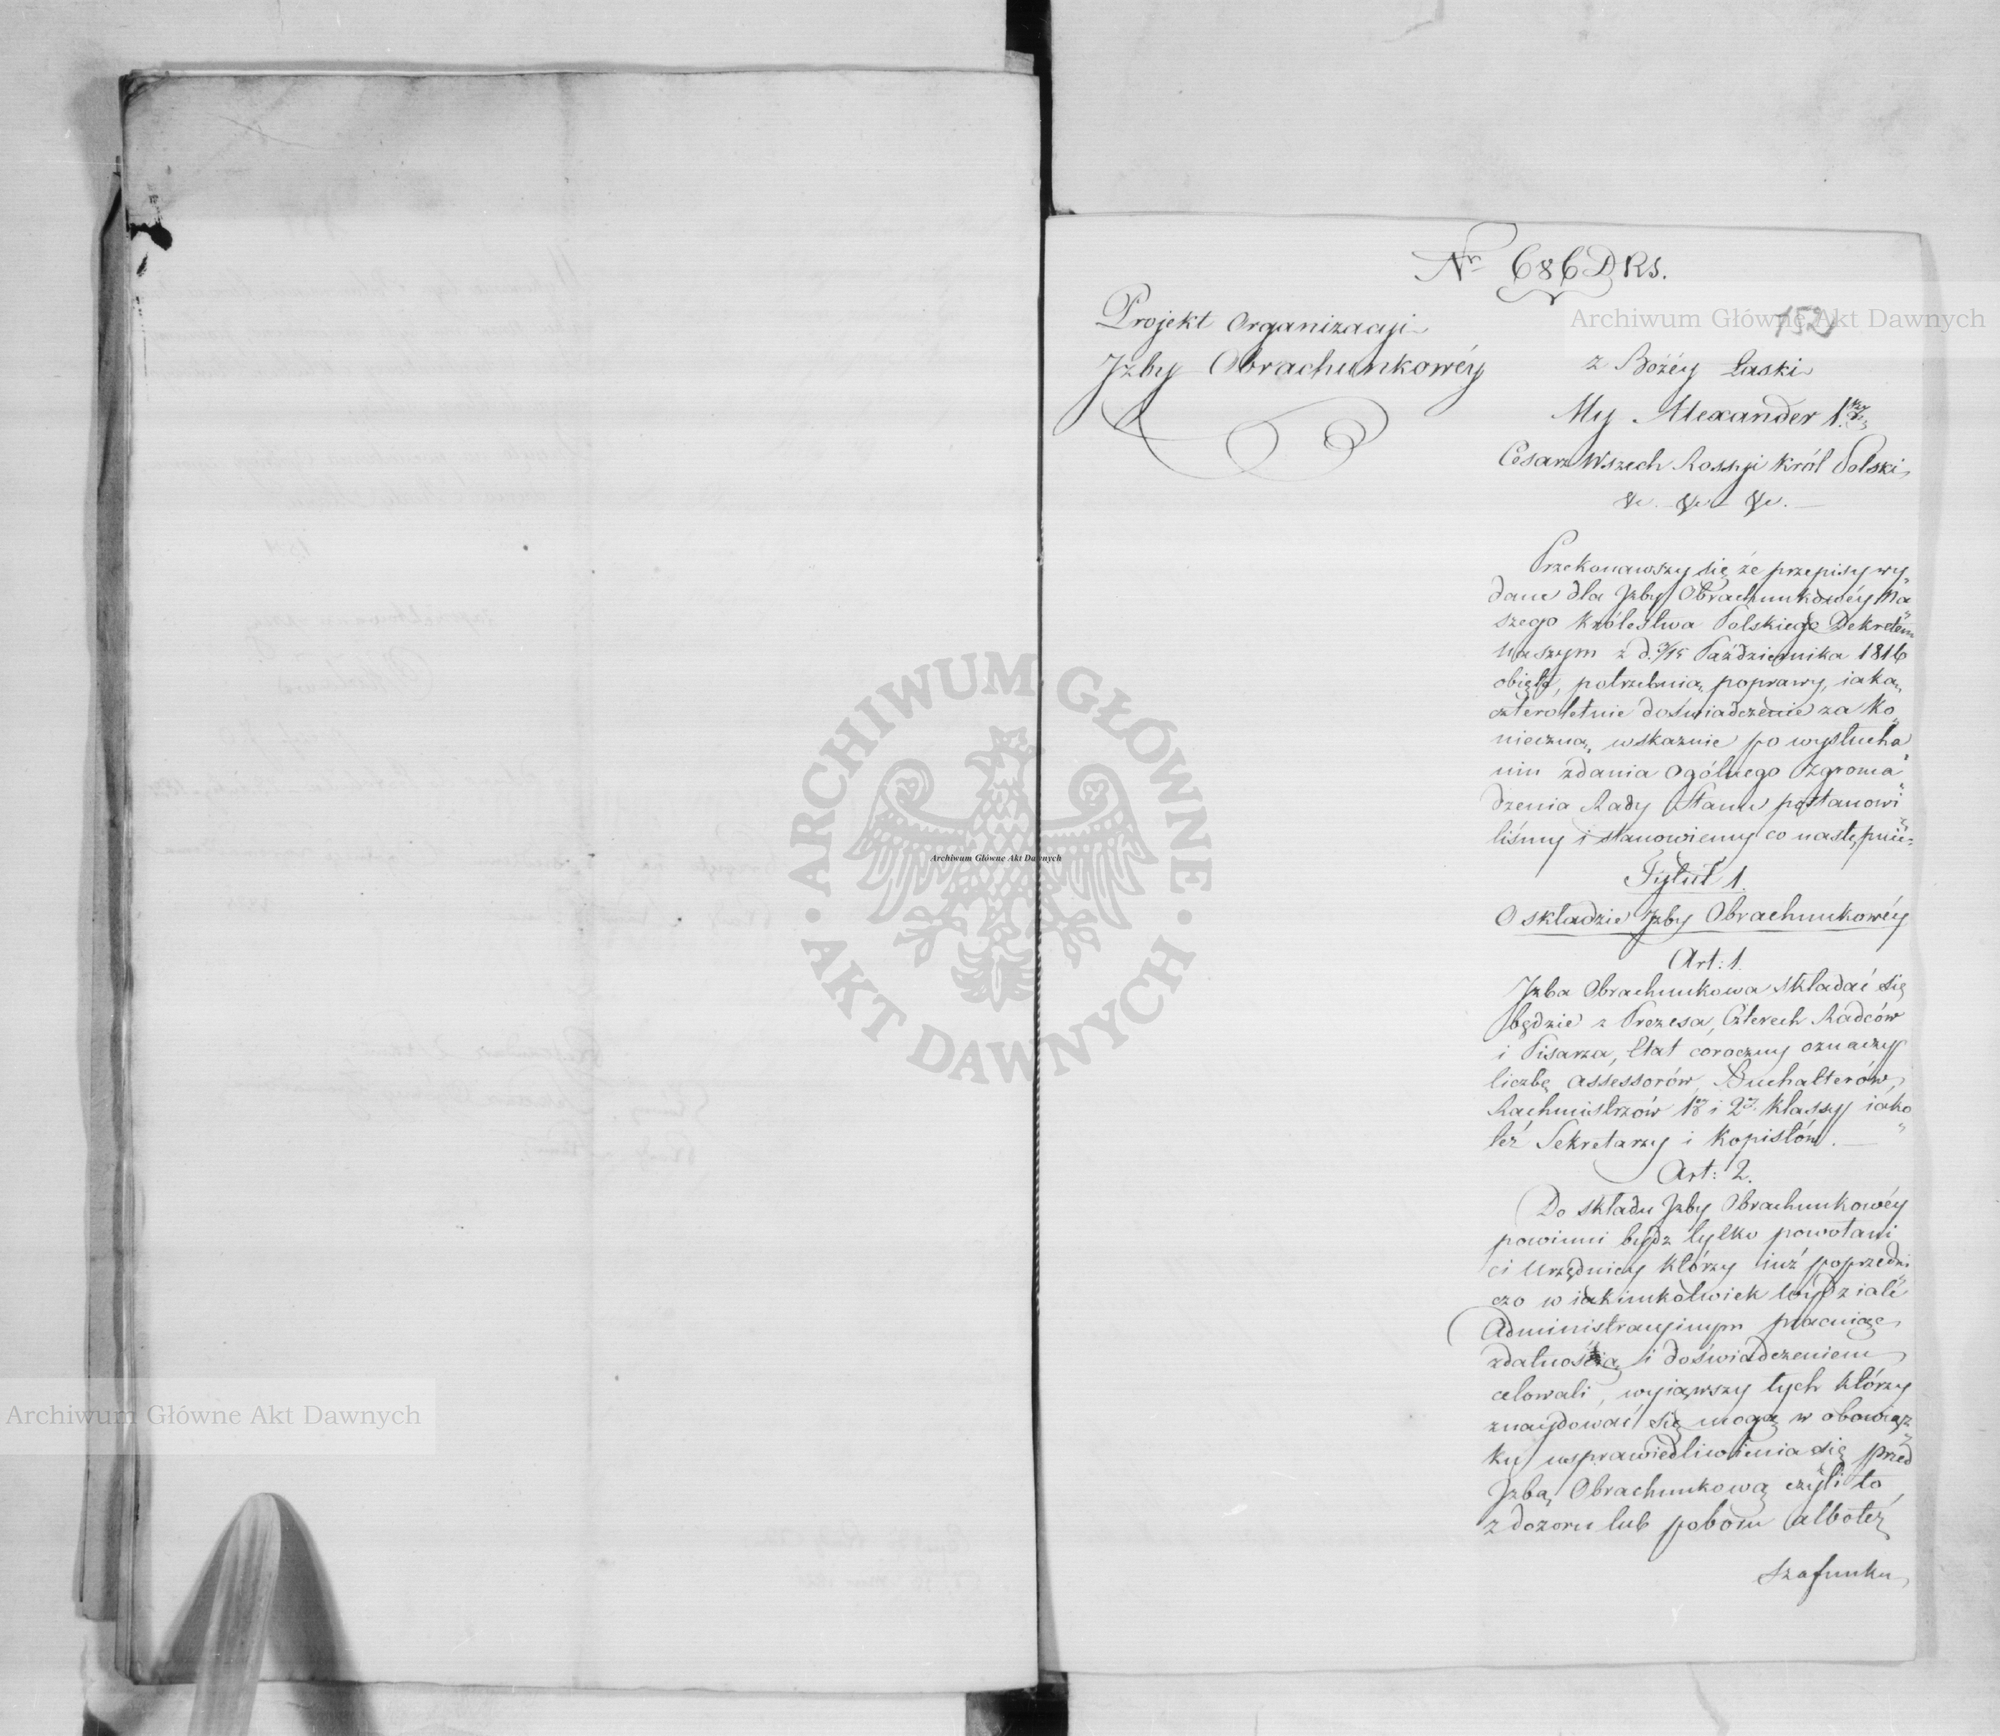 Nr 686 D.R.S.
152
Projekt Organizacyi
Jzby Obrachunkowéy
z Bożéy Łaski
My Alexander 1.szy
Cesarz Wszech Rossyi Król Polski
&c. &c. &c.
Przekonawszy się że przepisy wy„
dane dla Jzby Obrachunkowéy Na„
szego Królestwa Polskiego Dekretem
Naszym z d. 3/15 Października 1816
obięte, potrzebuią poprawy, iaką
czteroletnie doświadczenie za ko„
nieczną wskazuie po wysłucha„
niu zdania Ogólnego Zgroma„
dzenia Rady Stanu postanowi„
liśmy i stanowiemy co następuie:
Tytuł 1.
O składzie Jzby Obrachunkowéy
Art: 1.
Jzba Obrachunkowa składać się
będzie z Prezesa, Czterech Radców
i Pisarza, Etat coroczny oznaczy
liczbę Assessorów, Buchalterów,
Rachmistrzów 1éy i 2éy klassy iako„
też Sekretarzy i Kopistów. —
Art: 2.
Do składu Jzby Obrachunkowéy
powinni bydz tylko powołani
ci Urzędnicy którzy iuż poprzedni„
czo w iakimkolwiek wydziale
Administracyinym pracuiąc,
zdatnością i doświadczeniem
celowali, wyiąwszy tych którzy
znaydować się mogą w obowiąz„
ku usprawiedliwienia się przed
Jzbą Obrachunkową czyli to
z dozoru lub poboru alboteż
szafunku
Archiwum Główne Akt Dawnych
Archiwum Główne Akt Dawnych
Archiwum Główne Akt Dawnych
ARCHIWUM GŁÓWNE
AKT DAWNYCH